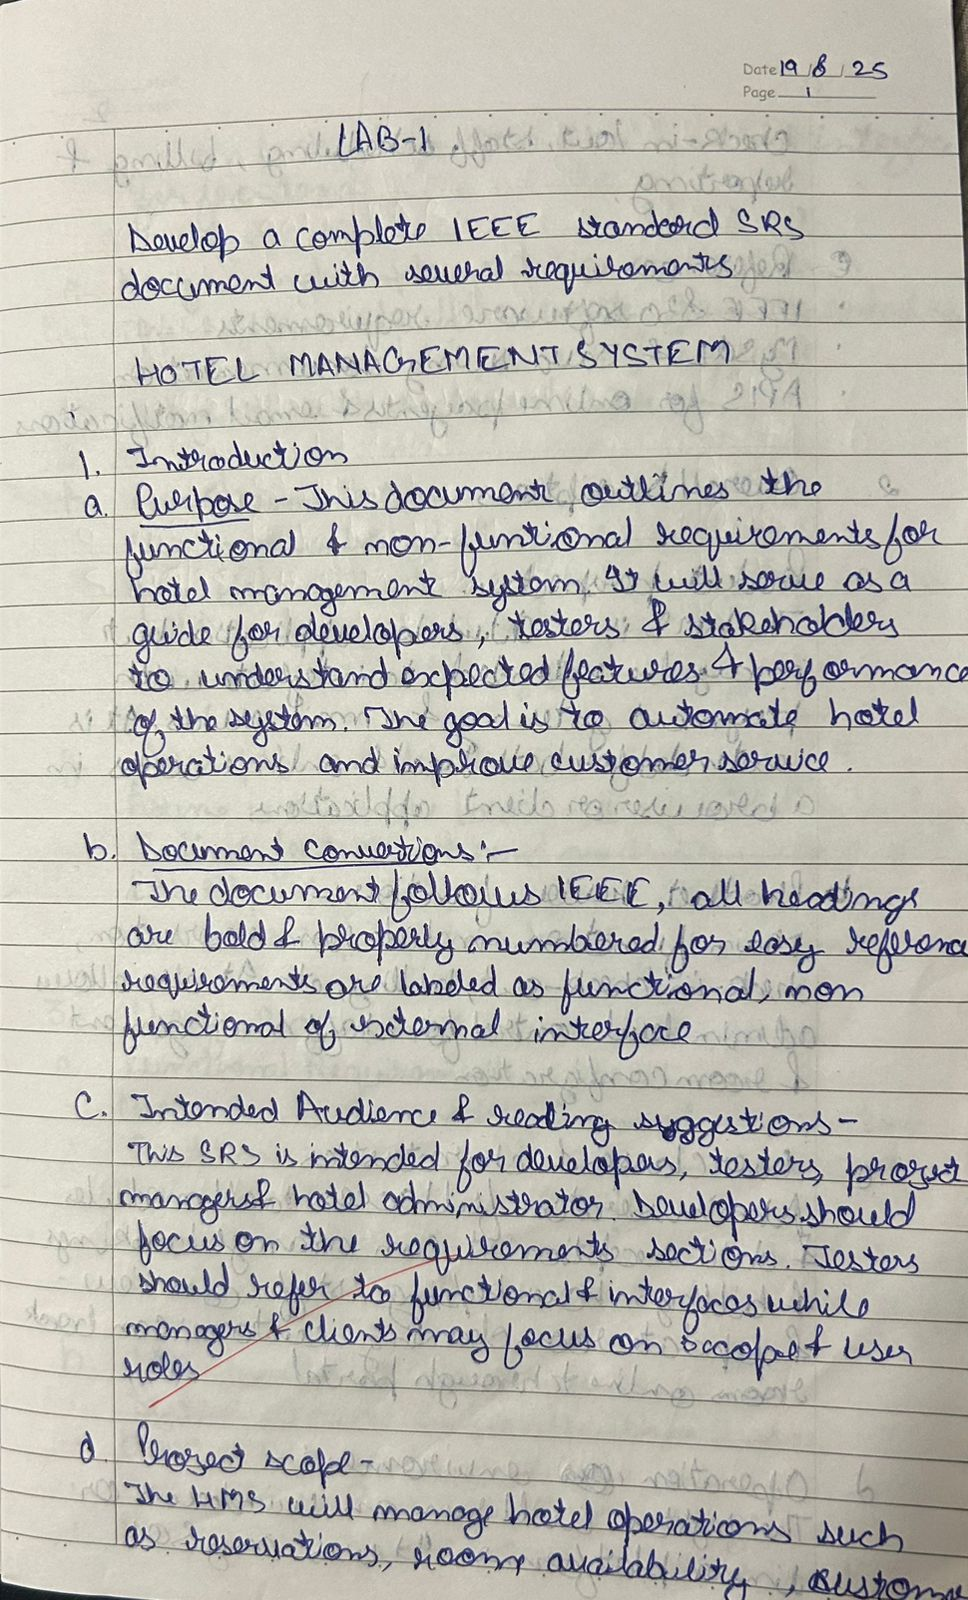 Date 19/8/25
Page 1
LAB-1
Develop a complete IEEE standard SRS
document with several requirements
HOTEL MANAGEMENT SYSTEM
1. Introduction
a. Purpose - This document outlines the
functional & non-funtional requirements for
hotel management system. It will serve as a
guide for developers, testers & stakeholders
to understand expected features & performance
of the system. The goal is to automate hotel
operations and improve customer service.
b. Document Convertions :-
The document follows IEEE, all headings
are bold & properly numbered for easy reference
requirements are labeled as functional, non
functional of external interface
C. Intended Audience & reading suggestions -
This SRS is intended for developers, testers, project
managers & hotel administrator. Developers should
focus on the requirements sections. Testers
should refer to functional & interfaces while
managers & clients may focus on scope & user
roles
d. Project scope -
The HMS will manage hotel operations such
as reservations, room availability, custome